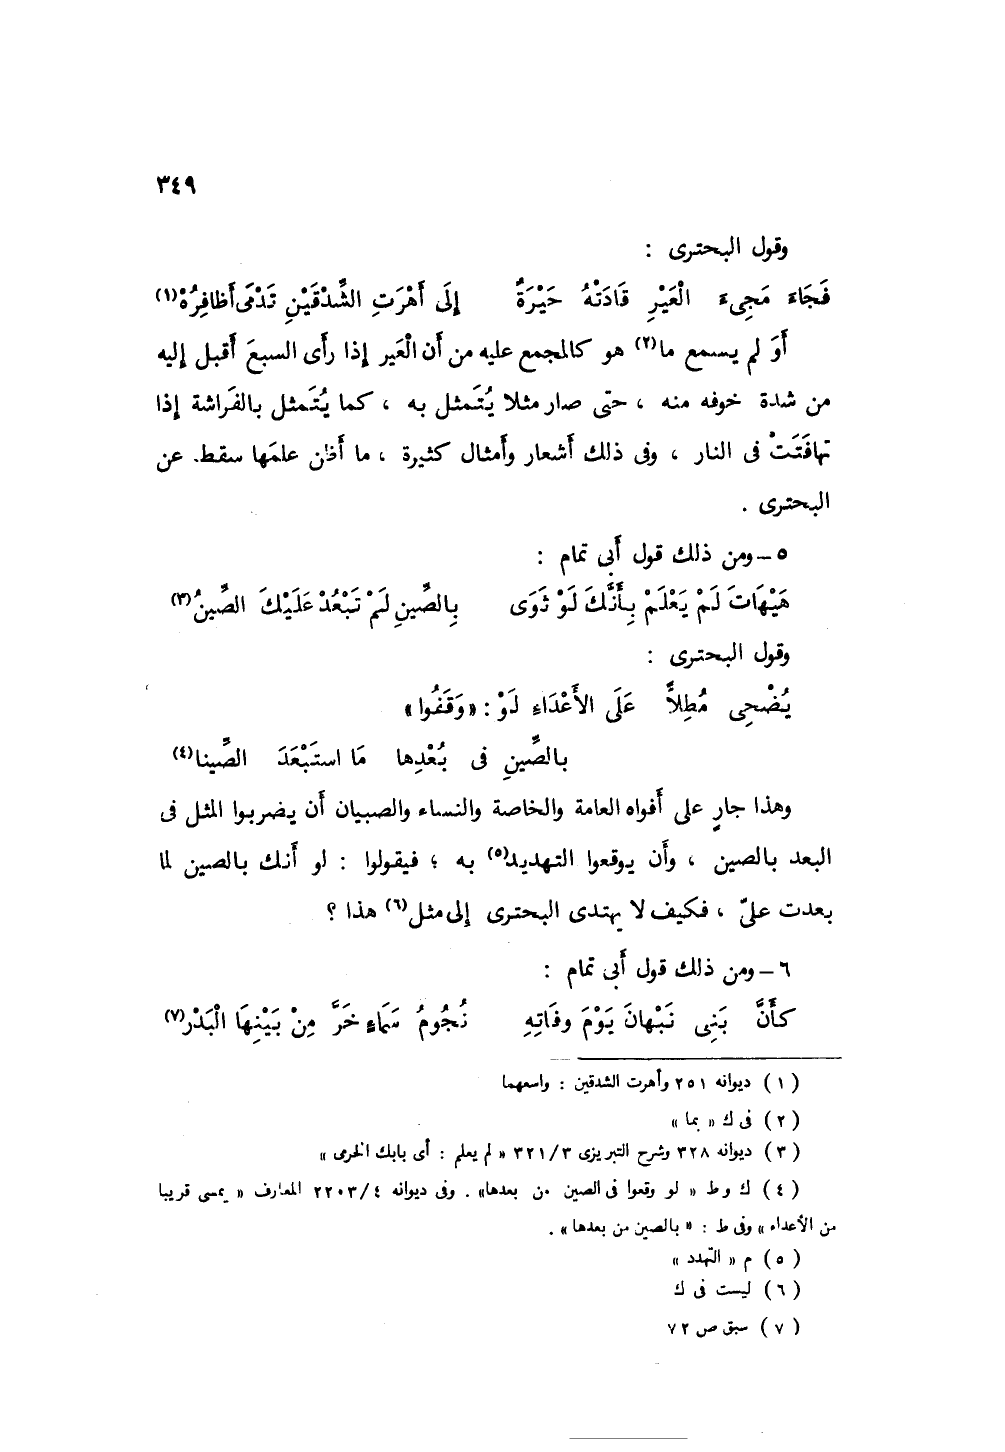 ٣٤٩
وقول البحترى :
فَجَاءَ مَجِىءَ الْعَيْرِ قَادَتْهُ حَيْرَةٌ إِلَى أَهْرَتِ الشِّدْقَيْنِ تَدْمَى أَظافِرُهْ(١)
أَوَ لم يسمع ما(٢) هو كالمجمع عليه من أن العَير إذا رأى السبعَ أقبل إليه
من شدة خوفه منه ، حتى صار مثلا يُتَمثل به ، كما يُتَمثل بالفَراشة إذا
تهافَتَتْ فى النار ، وفى ذلك أشعار وأمثال كثيرة ، ما أظن علمَها سقط عن
البحترى .
٥ – ومن ذلك قول أبى تمام :
هَيْهَاتَ لَمْ يَعْلَمْ بِأَنَّكَ لَوْ ثَوَى بِالصِّينِ لَمْ تَبْعُدْ عَلَيْكَ الصِّينُ(٣)
وقول البحترى :
يُضْحِى مُطِلاًّ عَلَى الأَعْدَاءِ لَوْ : « وَقَفُوا »
بالصِّينِ فى بُعْدِها مَا استَبْعَدَ الصِّينا(٤)
وهذا جارٍ على أفواه العامة والخاصة والنساء والصبيان أن يضربوا المثل فى
البعد بالصين ، وأن يوقعوا التهديد(٥) به ؛ فيقولوا : لو أنك بالصين لما
بعدت علىّ ، فكيف لا يهتدى البحترى إلى مثل(٦) هذا ؟
٦ – ومن ذلك قول أبى تمام :
كأَنَّ بَنِى نَبْهانَ يَوْمَ وفَاتِهِ نُجُومُ سَمَاءٍ خَرَّ مِنْ بَيْنِهَا الْبَدْر(٧)
( ١ ) ديوانه ٢٥١ وأهرت الشدقين : واسعهما
( ٢ ) فى ك « بما »
( ٣ ) ديوانه ٣٢٨ وشرح التبريزى ٣٢١/٣ « لم يعلم : أى بابك الخرمى »
( ٤ ) ك وط « لو وقعوا فى الصين من بعدها» . وفى ديوانه ٢٢٠٣/٤ المعارف « يمسى قريبا
من الأعداء » وفى ط : « بالصين من بعدها » .
( ٥ ) م « التهدد »
( ٦ ) ليست فى ك
( ٧ ) سبق ص ٧٢